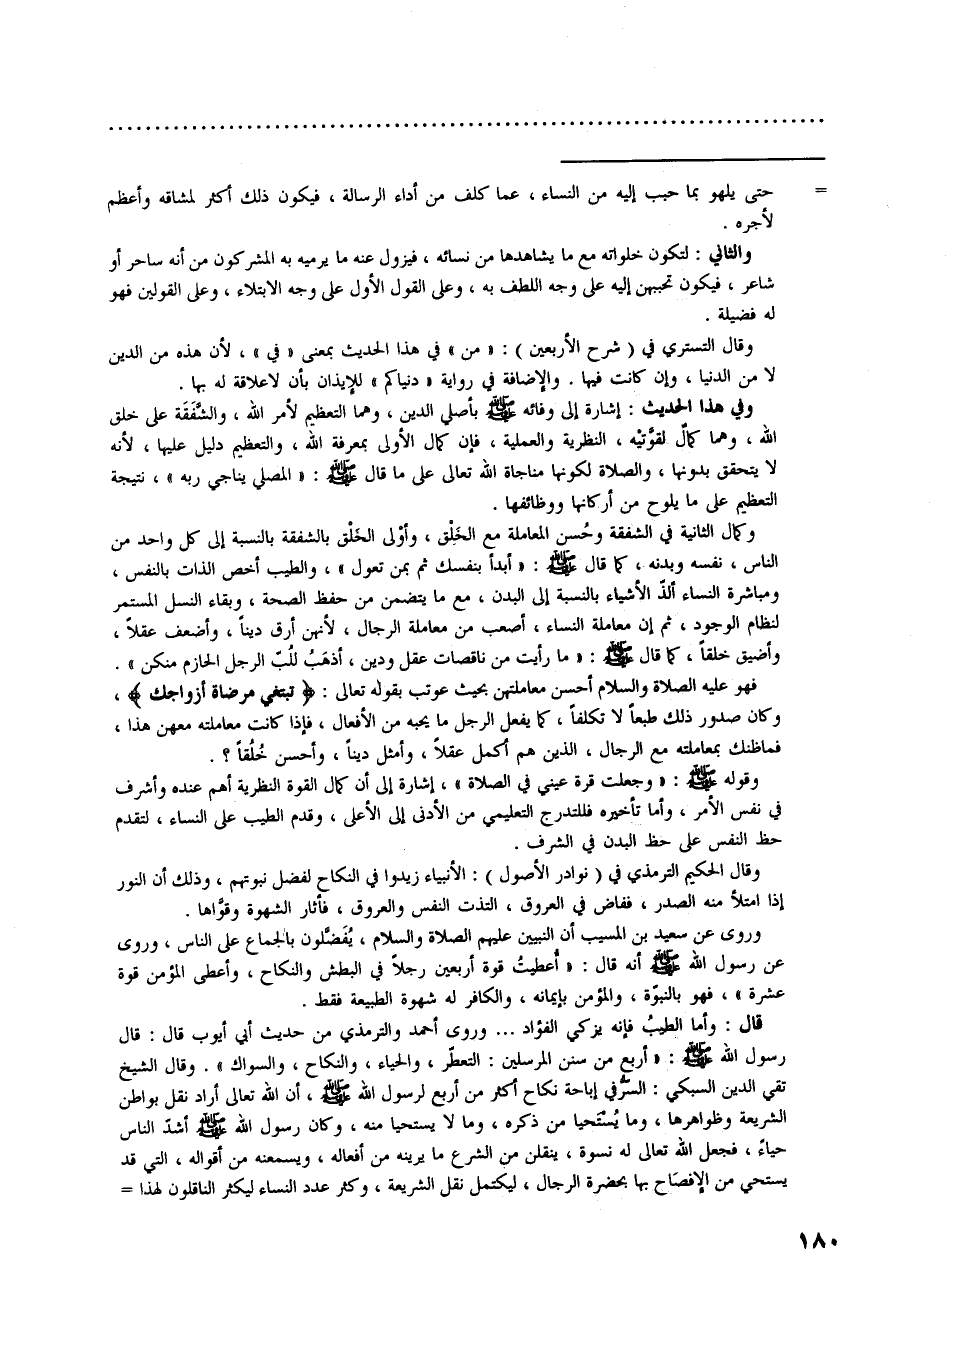 = حتى يلهو بما حبب إليه من النساء ، عما كلف من أداء الرسالة ، فيكون ذلك أكثر لمشاقه وأعظم
لأجره .
والثاني : لتكون خلواته مع ما يشاهدها من نسائه ، فيزول عنه ما يرميه به المشركون من أنه ساحر أو
شاعر ، فيكون تحببهن إليه على وجه اللطف به ، وعلى القول الأول على وجه الابتلاء ، وعلى القولين فهو
له فضيلة .
وقال التستري في ( شرح الأربعين ) : « من » في هذا الحديث بمعنى « في » ، لأن هذه من الدين
لا من الدنيا ، وإن كانت فيها . والإضافة في رواية « دنياكم » للإيذان بأن لاعلاقة له بها .
وفي هذا الحديث : إشارة إلى وفائه ﷺ بأصلي الدين ، وهما التعظيم لأمر الله ، والشَّفَقَة على خلق
الله ، وهما كمالٌ لقوَّتيْه ، النظرية والعملية ، فإن كمال الأولى بمعرفة الله ، والتعظيم دليل عليها ، لأنه
لا يتحقق بدونها ، والصلاة لكونها مناجاة الله تعالى على ما قال ﷺ : « المصلي يناجي ربه » ، نتيجة
التعظيم على ما يلوح من أركانها ووظائفها .
وكمال الثانية في الشفقة وحُسن المعاملة مع الخَلِْق ، وأوْلى الخَلْق بالشفقة بالنسبة إلى كل واحد من
الناس ، نفسه وبدنه ، كما قال ﷺ : « أبدأ بنفسك ثم بمن تعول » ، والطيب أخص الذات بالنفس ،
ومباشرة النساء ألذّ الأشياء بالنسبة إلى البدن ، مع ما يتضمن من حفظ الصحة ، وبقاء النسل المستمر
لنظام الوجود ، ثم إن معاملة النساء ، أصعب من معاملة الرجال ، لأنهن أرق ديناً ، وأضعف عقلاً ،
وأضيق خلقاً ، كما قال ﷺ : « ما رأيت من ناقصات عقل ودين ، أذهَبُ للُبّ الرجل الحازم منكن » .
فهو عليه الصلاة والسلام أحسن معاملتهن بحيث عوتب بقوله تعالى : ﴿ تبتغي مرضاة أزواجك ﴾ ،
وكان صدور ذلك طبعاً لا تكلفاً ، كما يفعل الرجل ما يحبه من الأفعال ، فإذا كانت معاملته معهن هذا ،
فماظنك بمعاملته مع الرجال ، الذين هم أكمل عقلاً ، وأمثل ديناً ، وأحسن خُلُقاً ؟ .
وقوله ﷺ : « وجعلت قرة عيني في الصلاة » ، إشارة إلى أن كمال القوة النظرية أهم عنده وأشرف
في نفس الأمر ، وأما تأخيره فللتدرج التعليمي من الأدنى إلى الأعلى ، وقدم الطيب على النساء ، لتقدم
حظ النفس على حظ البدن في الشرف .
وقال الحكيم الترمذي في ( نوادر الأصول ) : الأنبياء زيدوا في النكاح لفضل نبوتهم ، وذلك أن النور
إذا امتلأ منه الصدر ، ففاض في العروق ، التذت النفس والعروق ، فأثار الشهوة وقوَّاها .
وروى عن سعيد بن المسيب أن النبيين عليهم الصلاة والسلام ، يُفَضَّلون بالجماع على الناس ، وروى
عن رسول الله ﷺ أنه قال : « أُعطيتُ قوة أربعين رجلاً في البطش والنكاح ، وأعطى المؤمن قوة
عشرة » ، فهو بالنبوّة ، والمؤمن بإيمانه ، والكافر له شهوة الطبيعة فقط .
قال : وأما الطيبُ فإنه يزكي الفؤاد ... وروى أحمد والترمذي من حديث أبي أيوب قال : قال
رسول الله ﷺ : « أربع من سنن المرسلين : التعطّر ، والحياء ، والنكاح ، والسواك » . وقال الشيخ
تقي الدين السبكي : السرُّ في إباحة نكاح أكثر من أربع لرسول الله ﷺ ، أن الله تعالى أراد نقل بواطن
الشريعة وظواهرها ، وما يُستَحيا من ذكره ، وما لا يستحيا منه ، وكان رسول الله ﷺ أشدّ الناس
حياءً ، فجعل الله تعالى له نسوة ، ينقلن من الشرع ما يرينه من أفعاله ، ويسمعنه من أقواله ، التي قد
يستحي من الإفصَاح بها بحضرة الرجال ، ليكتمل نقل الشريعة ، وكثر عدد النساء ليكثر الناقلون لهذا =
١٨٠